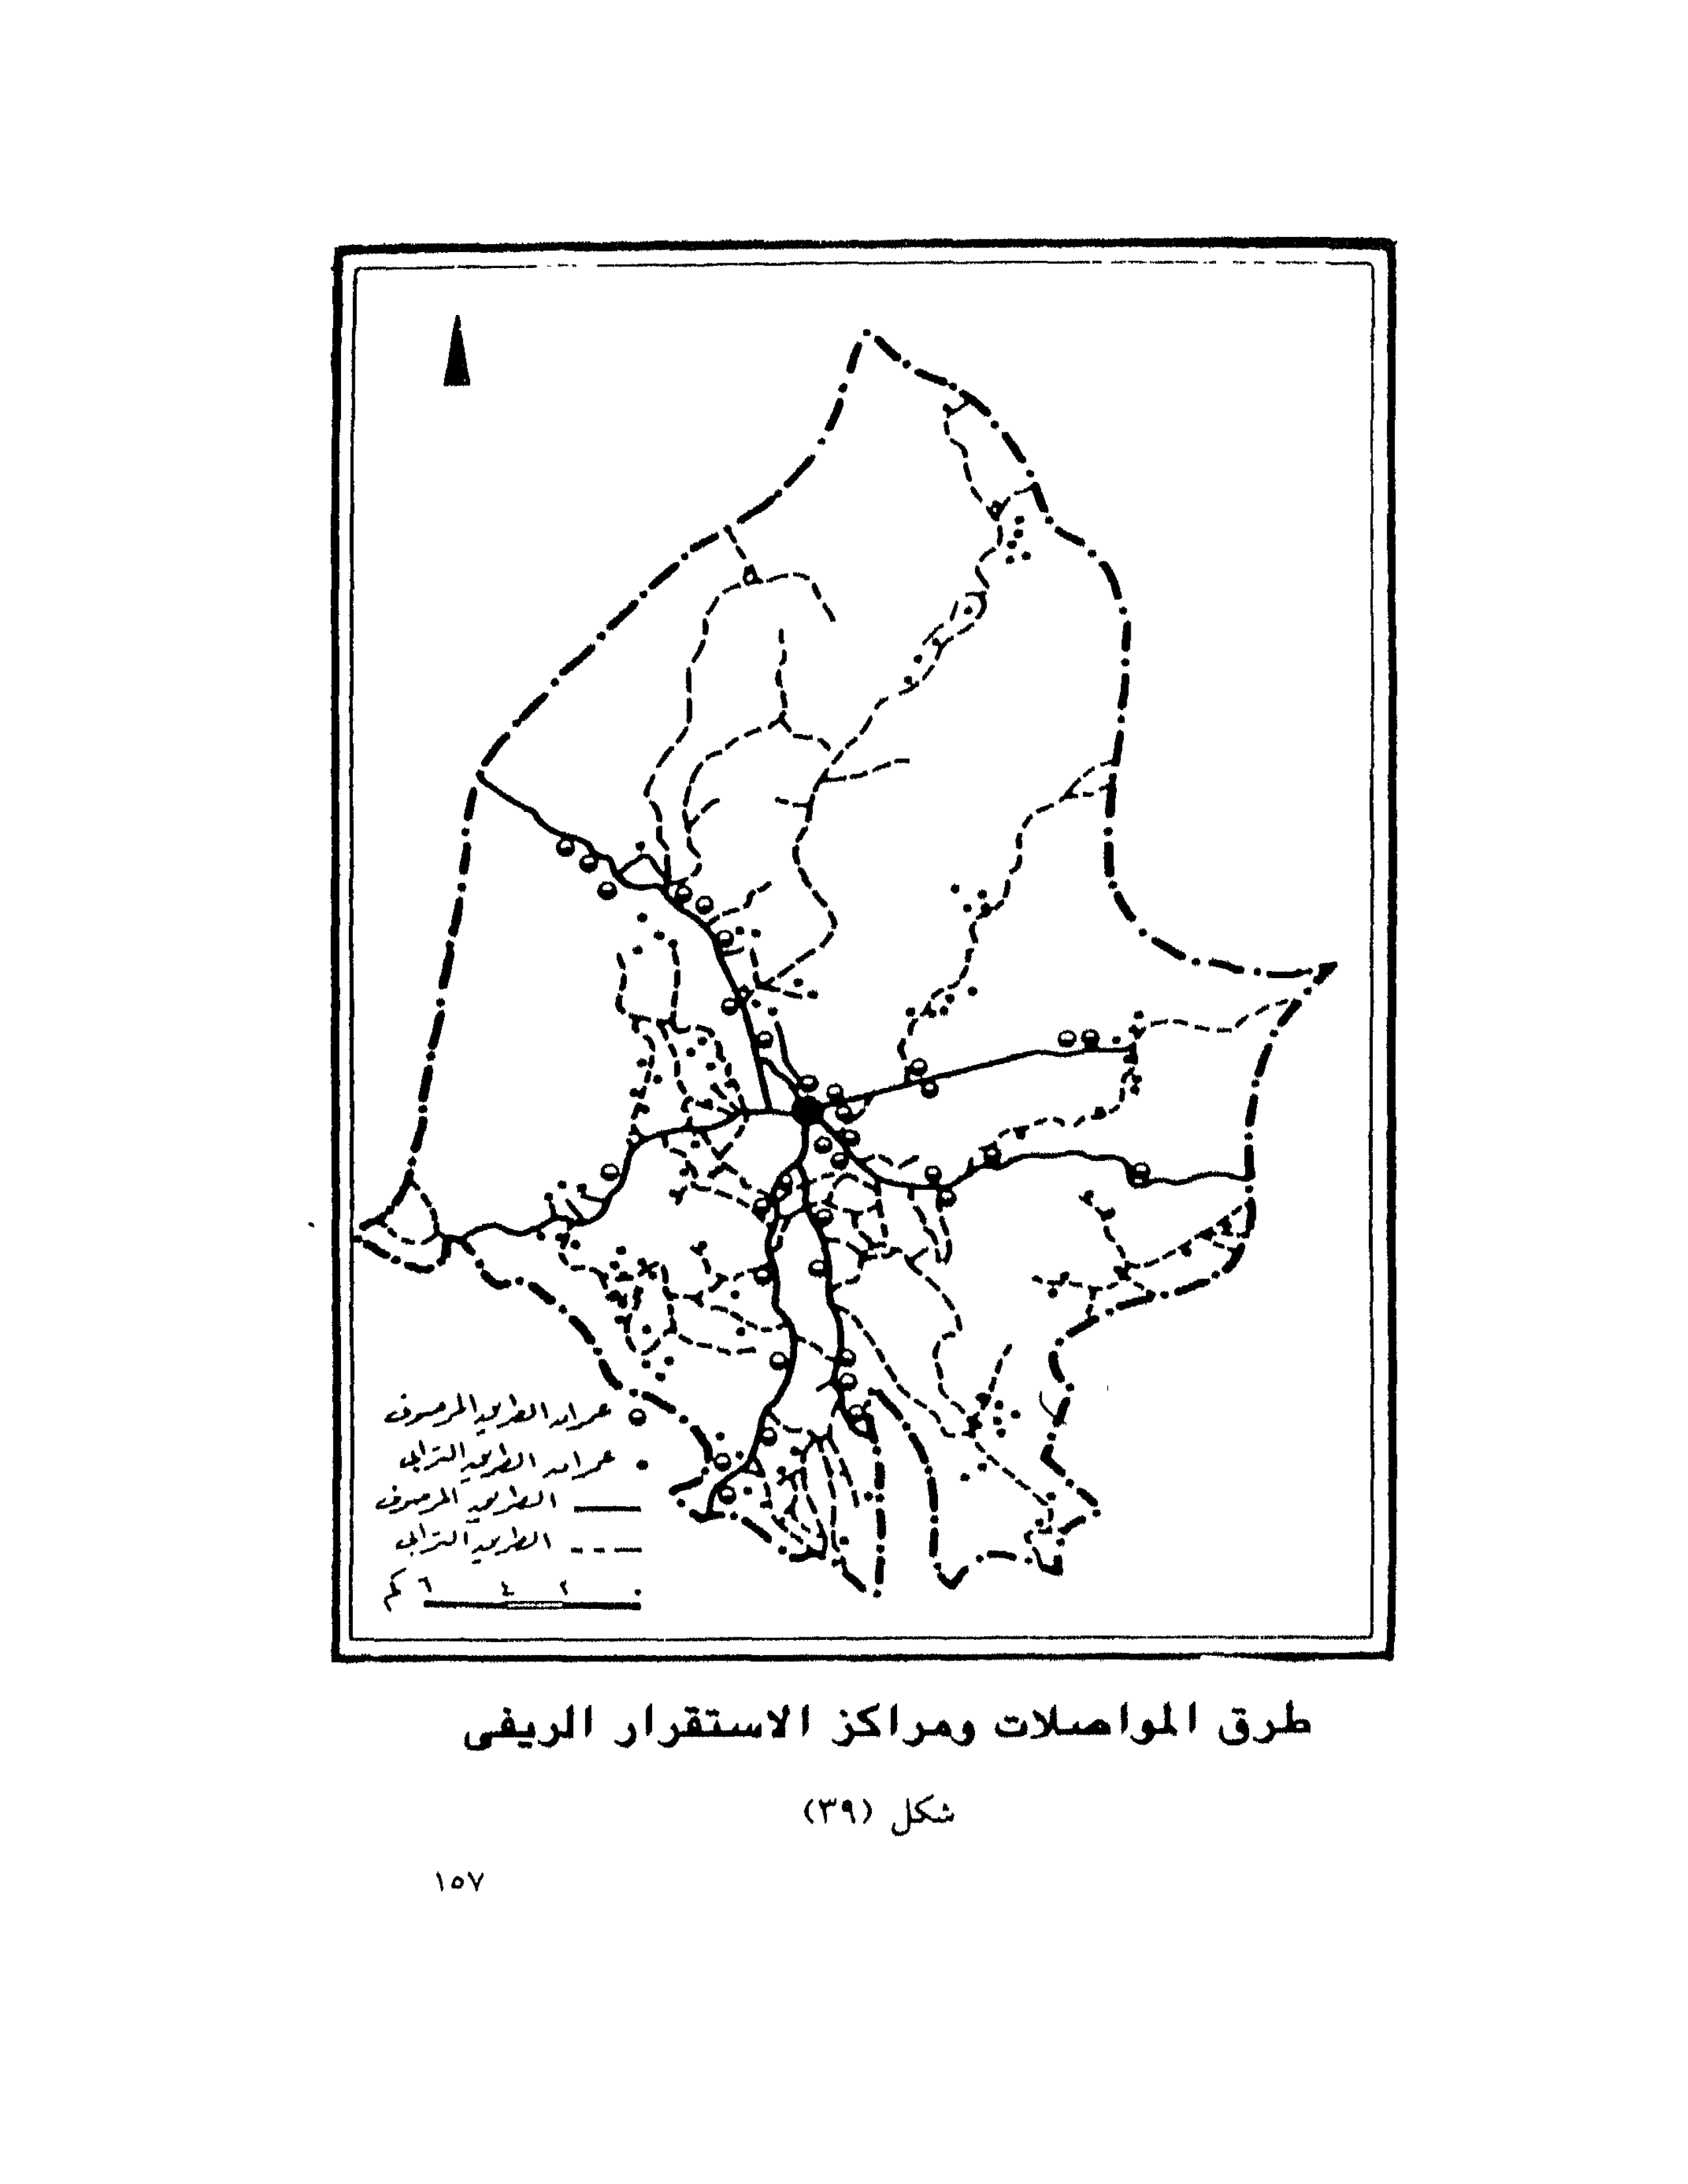 عمران الطريق المرصوف
عمران الطريق الترابى
الطريق المرصوف
الطريق الترابى
٠ ٢ ٤ ٦ كم
طرق المواصلات ومراكز الاستقرار الريفى
شكل (٣٩)
١٥٧